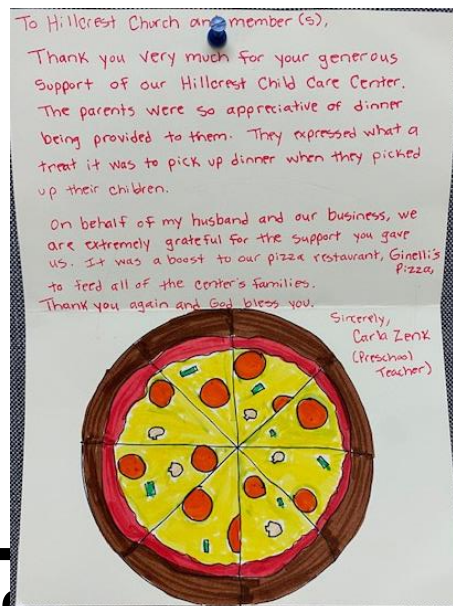 To Hillcrest Church and member(s),
Thank you very much for your generous
Support of our Hillcrest Child Care Center.
The parents were so appreciative of dinner
being provided to them. They expressed what a
treat it was to pick up dinner when they picked
up their children.
On behalf of my husband and our business, we
are extremely grateful for the support you gave
us. It was a boost to our pizza restaurant, Ginelli's
Pizza,
to feed all of the center's families.
Thank you again and God bless you.
Sincerely,
Carla Zenk
(Preschool
Teacher)